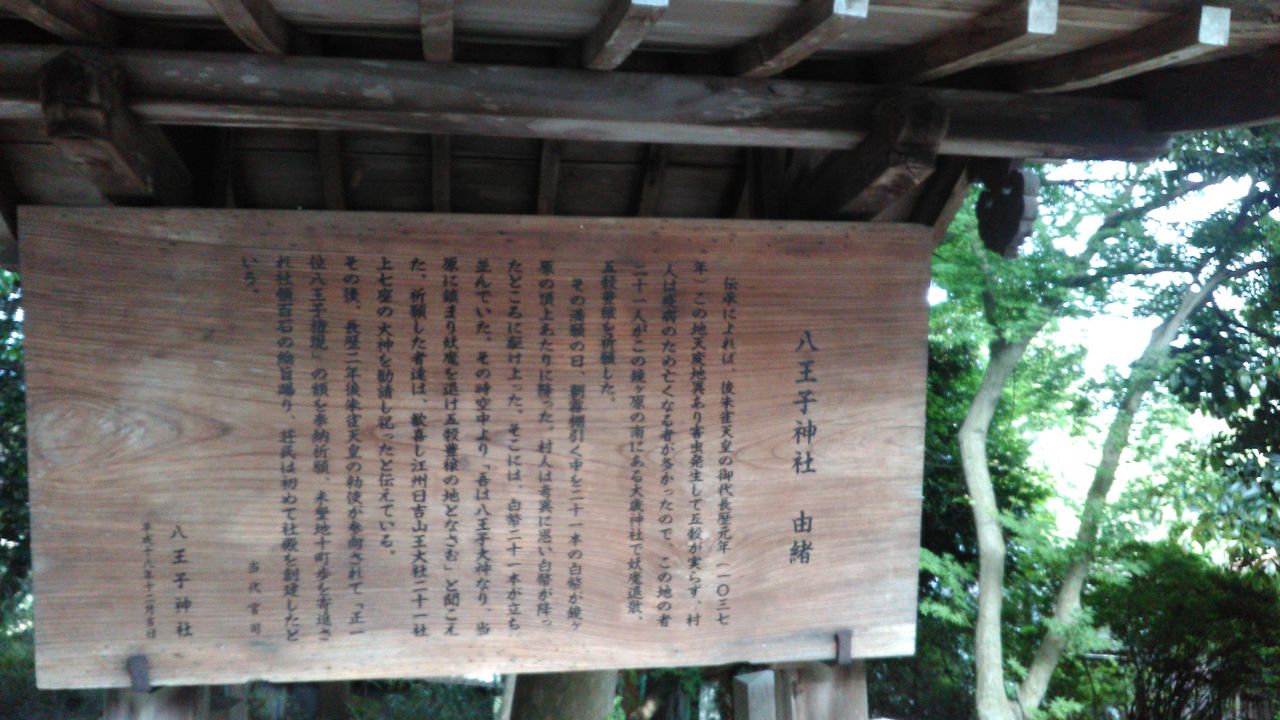 八王子神社　由緒
伝承によれば、後朱雀天皇の御代長歴元年（一〇三七
年）この地天変地異あり害虫発生して五穀が実らず、村
人は疫病のため亡くなる者が多かったので、この地の者
二十一人がこの鏡ヶ原の南にある大歳神社で妖魔退散、
五穀豊穣を祈願した。
その満願の日、朝霧棚引く中を二十一本の白幣が鏡ヶ
原の頂上あたりに降った。村人は奇異に思い白幣が降っ
たところに駆け上った。そこには、白幣二十一本が立ち
並んでいた。その時空中より「吾は八王子大神なり、当
原に鎮まり妖魔を退け五穀豊穣の地となさむ」と聞こえ
た。祈願した者達は、歓喜し江州日吉山王大社二十一社
上七座の大神を勧請し祀ったと伝えている。
その後、長歴二年後朱雀天皇の勅使が参向されて「正一
位八王子権現」の額を奉納祈願、未墾地十町歩を寄進さ
れ社領百石の綸旨賜り、荘民は初めて社殿を創建したと
いう。
当代宮司
八王子神社
平成十八年十二月吉日